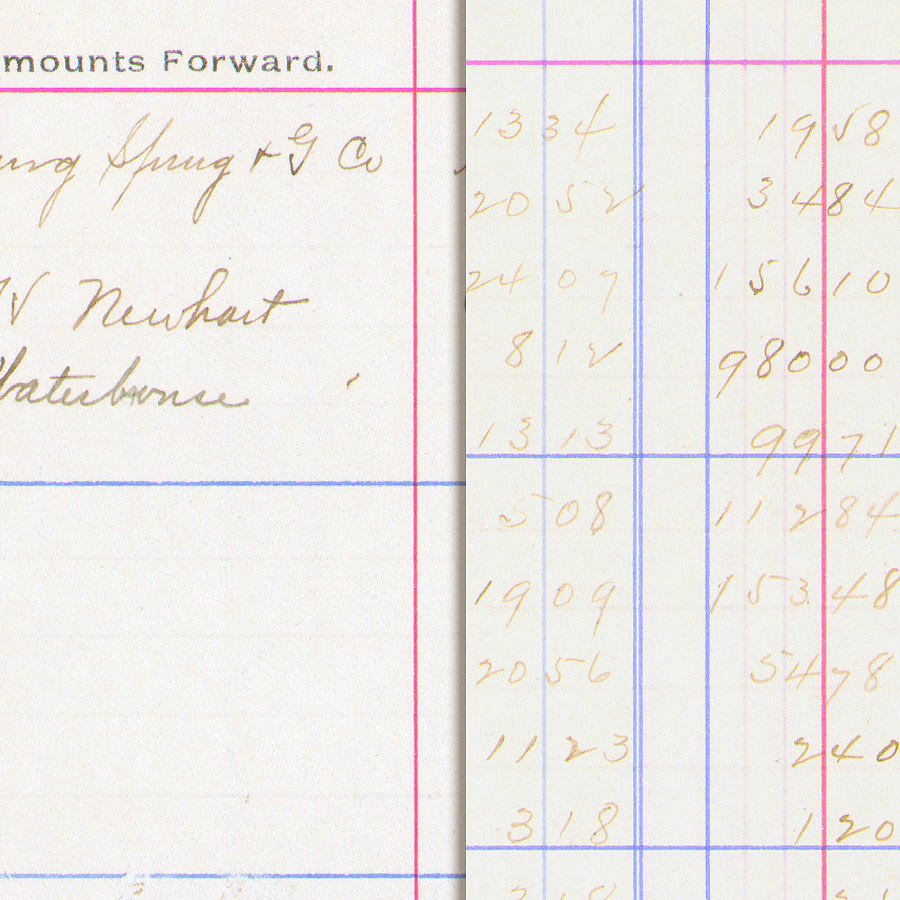 mounts Forward.
Sprug + G Co
Newhart
Waterhouse
1334 1958
2052 3484
2407 15610
812 98000
1313 9971
508 11284
1909 15348
2056 5478
1123 240
318 120